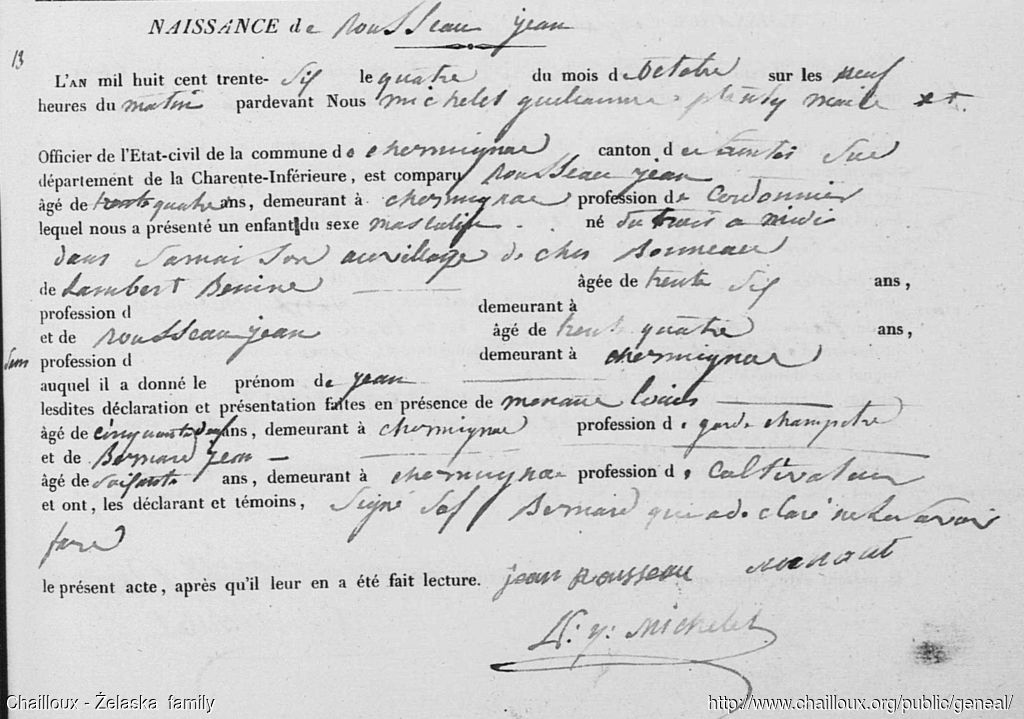 NAISSANCE de rousseau jean
13
L'AN mil huit cent trente-six le quatre du mois d octobre sur les neuf
heures du matin pardevant Nous michelet guillaume maire et
Officier de l'Etat-civil de la commune de chermignac canton de Saintes Sud
département de la Charente-Inférieure, est comparu rousseau jean
âgé de trente quatre ans, demeurant à chermignac profession de Cordonnier
lequel nous a présenté un enfant du sexe masculin né du trois a midi
dans Samaison au village de ches Bonneau
de Lambert Benine âgée de trente Six ans,
profession d demeurant à
et de rousseau jean âgé de trente quatre ans,
profession d demeurant à chermignac
auquel il a donné le prénom de jean
lesdites déclaration et présentation faites en présence de menaud Louis
âgé de cinquante ans, demeurant à chermignac profession de garde champetre
et de Bernard jean
âgé de soisante ans, demeurant à chermignac profession de Cultivateur
et ont, les déclarant et témoins, Signé Sof Bernard qui a de claré ne le savoir
faire
le présent acte, après qu'il leur en a été fait lecture. jean rousseau menaut
Michelet
Chailloux - Żelaska family http://www.chailloux.org/public/geneal/